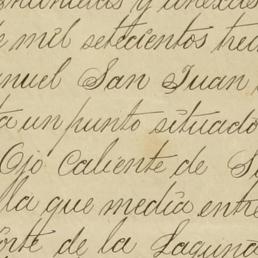 y anexas
de mil setecientos tre
nuel San Juan
a un punto situado
Ojo Caliente de S
lla que media entre
orte de la Laguna